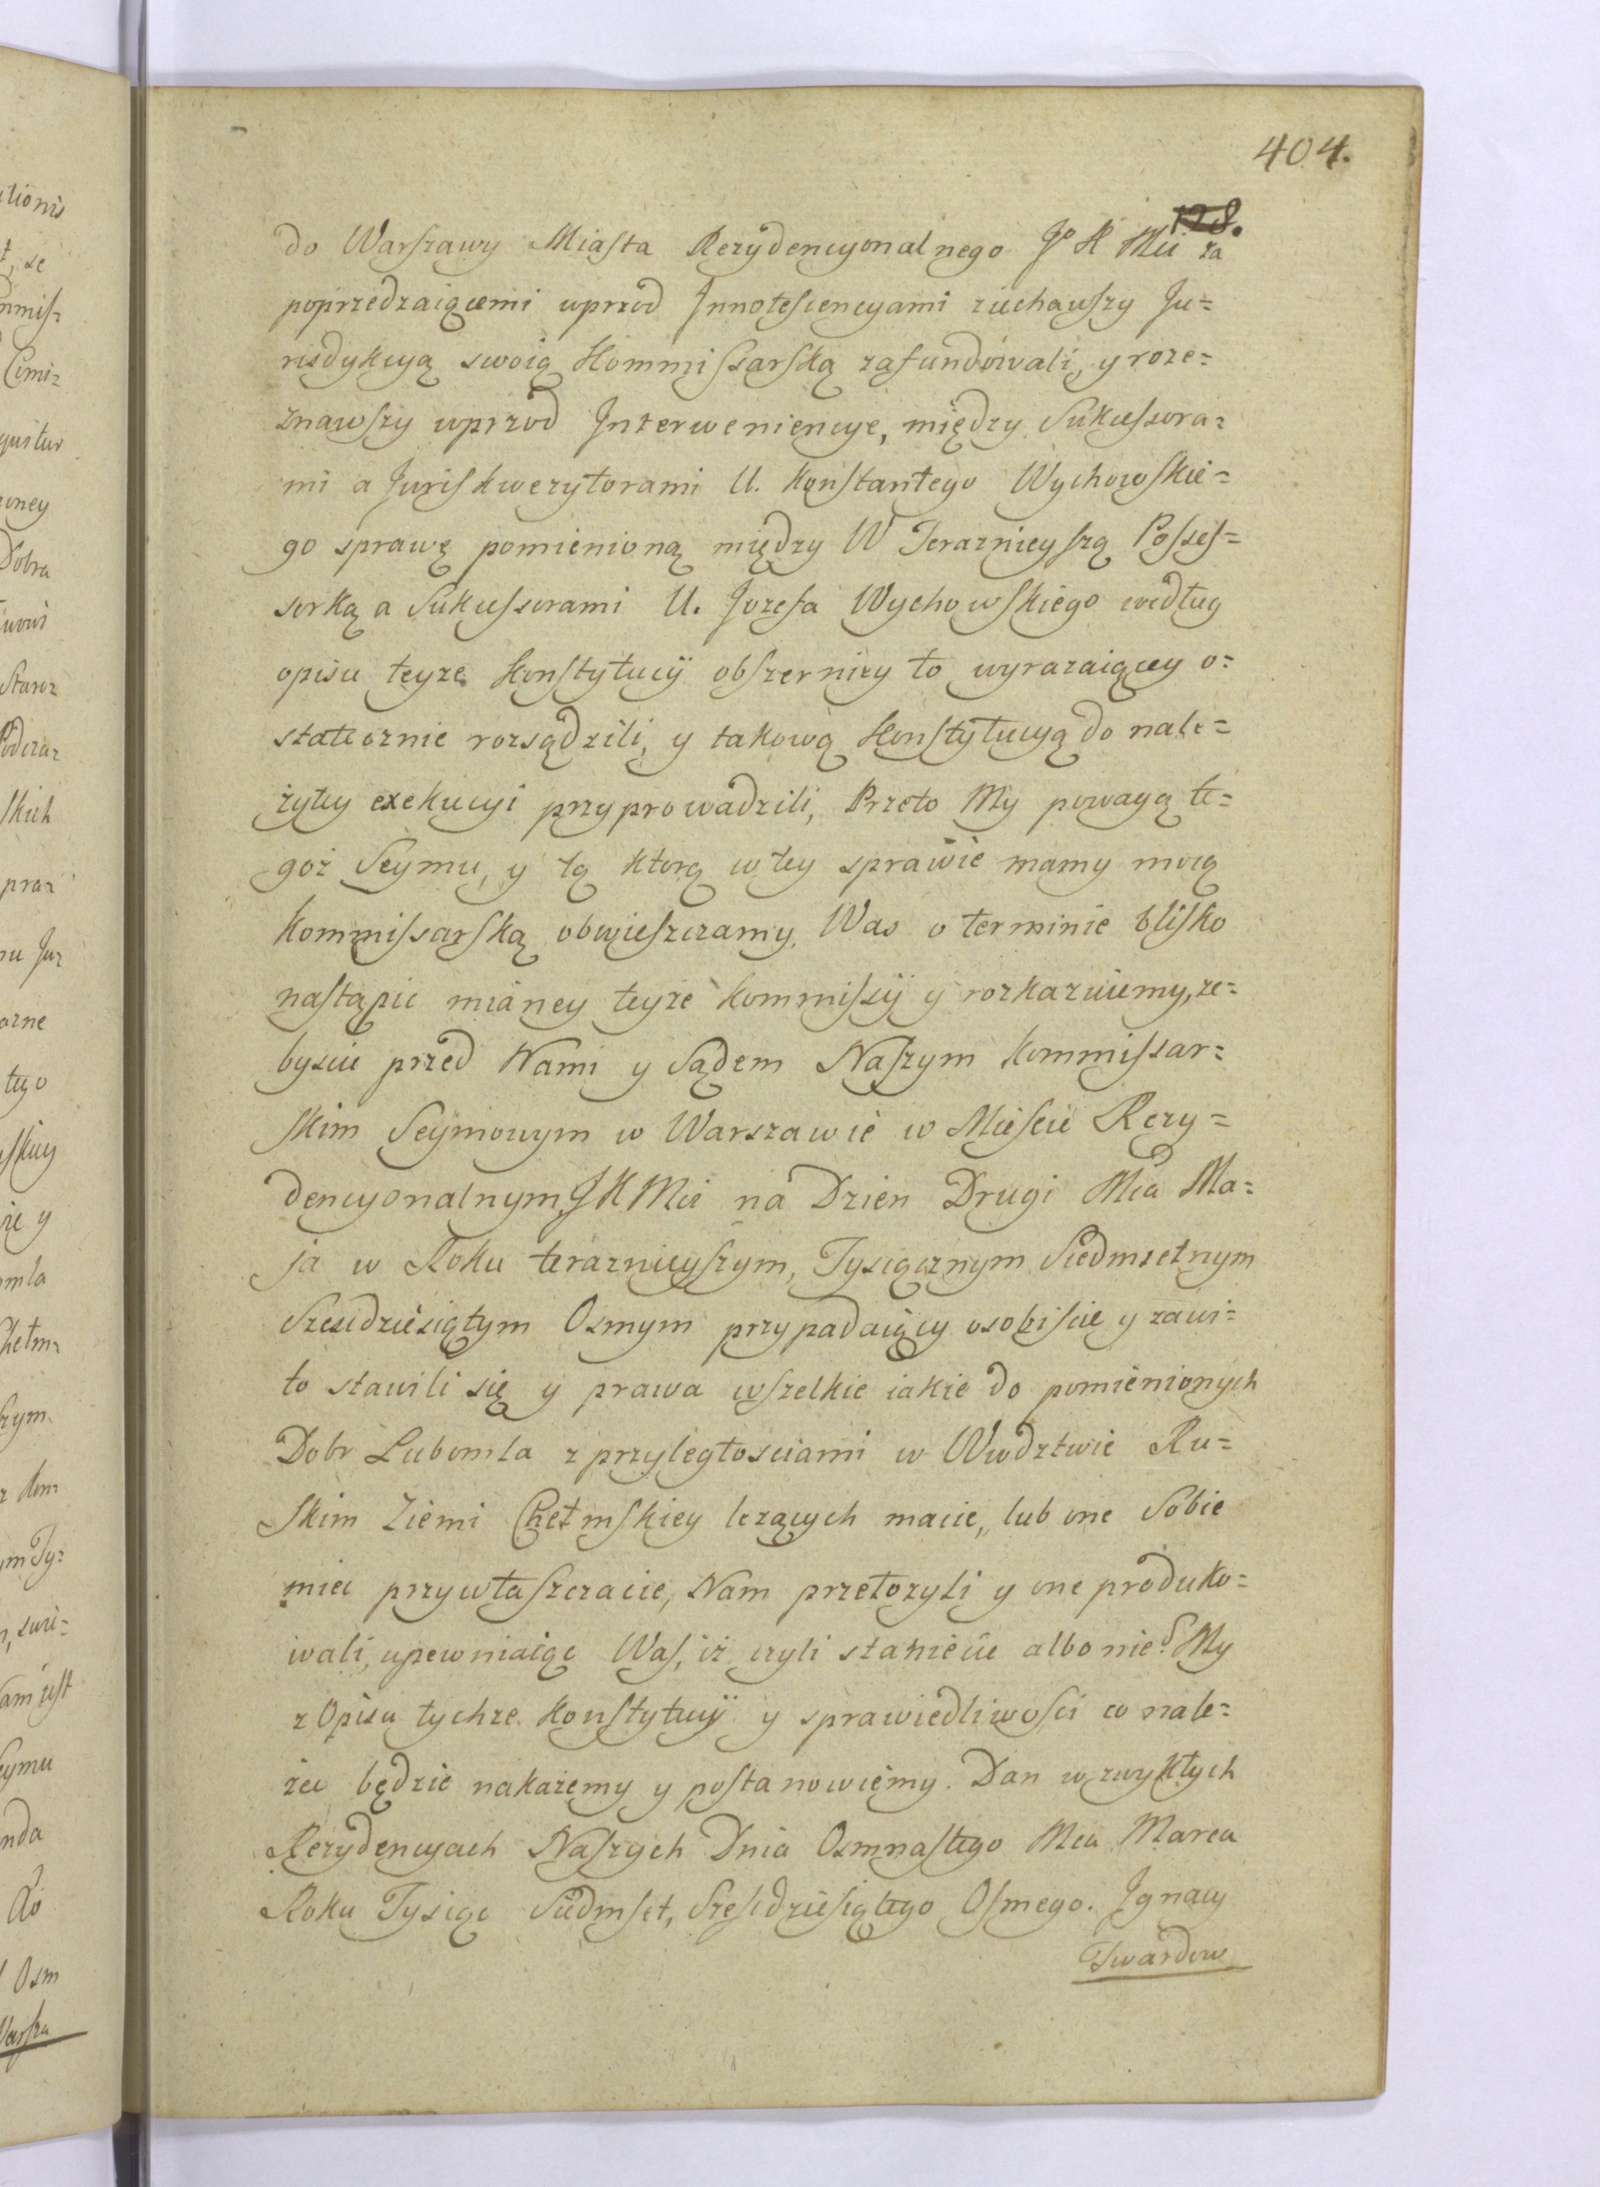 404.
128.
do Warszawy Miasta Rezydencyonalnego Jo K Mci za
poprzedzaiącemi wprzod Innotescencyami ziechawszy Ju=
risdykcyą swoią Kommissarską zafundowali, y roze=
znawszy wprzod Interweniencye, między Sukcessora=
mi a Juriskwezytorami U. Konstantego Wychowskie=
go sprawę pomienioną między W Teraznieyszą Posses=
sorką a Sukcessorami U. Jozefa Wychowskiego według
opisu teyze Konstytucyi obszerniey to wyrazaiącey o=
statecznie rozsądzili, y takową Konstytucyą do nale=
żytey exekucyi przyprowadzili, Przeto My powagą te=
goż Seymu, y tą ktorą w tey sprawie mamy mocą
Kommissarską obwieszczamy, Was o terminie blisko
nastąpic mianey teyże Kommissyi y rozkazuiemy, ze=
byscie przed Nami y Sądem Naszym Kommissar=
skim Seymowym w Warszawie w Miescie Rezy=
dencyonalnym, JK Mci na Dzien Drugi Mca Ma=
ja w Roku teraznieyszym, Tysiącznym Siedmsetnym
Szescdziesiątym Osmym przypadaiący osobiscie y zawi=
to stawili się y prawa wszelkie iakie do pomienionych
Dobr Lubomla z przyległosciami w Wwdztwie Ru=
skim Ziemi Chełmskiey lezących macie, lub one Sobie
miec przywłaszczacie, Nam przełozyli y one produko=
wali, upewniaiąc Was, iż czyli staniecie albo nie? My
z Opisu tychze Konstytucyi y sprawiedliwosci co nale=
żec będzie nakażemy y postanowiemy. Dan w zwykłych
Rezydencyach Naszych Dnia Osmnastego Mca Marca
Roku Tysiąc Siedmset, Szescdziesiątego Osmego. Ignacy
Twardow